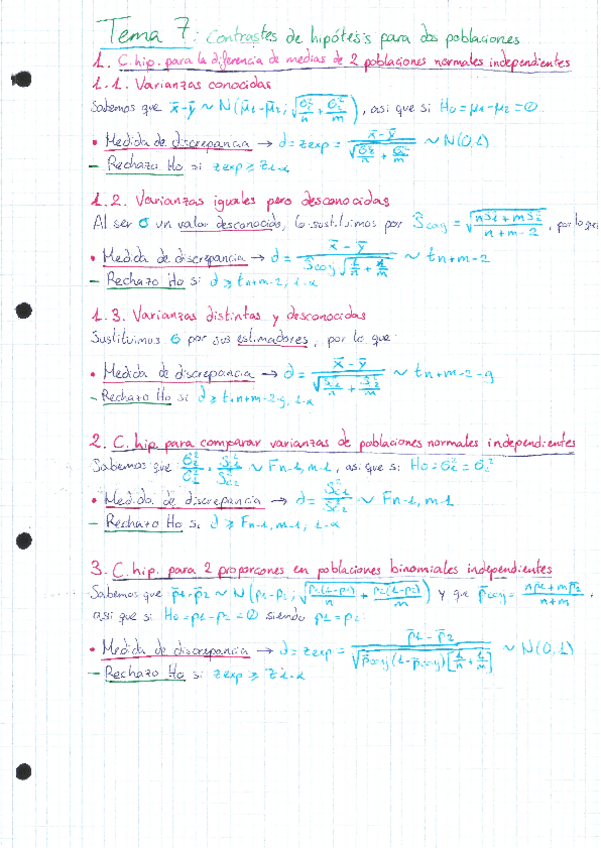 Tema 7: Contrastes de hipótesis para dos poblaciones
1. C. hip. para la diferencia de medias de 2 poblaciones normales independientes
1.1. Varianzas conocidas
Sabemos que x̄-ȳ ~ N(μ1-μ2; √(σ1²/n + σ2²/m)), así que si H0=μ1-μ2=0
• Medida de discrepancia → d=zexp = (x̄-ȳ)/√(σ1²/n + σ2²/m) ~ N(0,1)
- Rechazo H0 si zexp ≥ z1-α
1.2. Varianzas iguales pero desconocidas
Al ser σ un valor desconocido, lo sustituimos por Ŝconj = √((nS1²+mS2²)/(n+m-2)), por lo que:
• Medida de discrepancia → d = (x̄-ȳ)/(Ŝconj √(1/n + 1/m)) ~ tn+m-2
- Rechazo H0 si d ≥ tn+m-2, 1-α
1.3. Varianzas distintas y desconocidas
Sustituimos σ por sus estimadores, por lo que:
• Medida de discrepancia → d = (x̄-ȳ)/√(Ŝ1²/n + Ŝ2²/m) ~ tn+m-2-g
- Rechazo H0 si d ≥ tn+m-2-g, 1-α
2. C. hip. para comparar varianzas de poblaciones normales independientes
Sabemos que ~ Fn-1, m-1, así que si H0=σ1²=σ2²
• Medida de discrepancia → d = ~ Fn-1, m-1
- Rechazo H0 si d ≥ Fn-1, m-1, 1-α
3. C. hip. para 2 proporciones en poblaciones binomiales independientes
Sabemos que p̄1-p̄2 ~ N(p1-p2; √(p1(1-p1)/n + p2(1-p2)/m)) y que p̄conj = (np̄1+mp̄2)/(n+m),
así que si H0=p1-p2=0 siendo p1=p2:
• Medida de discrepancia → d=zexp = (p̄1-p̄2)/√(p̄conj(1-p̄conj)[1/n + 1/m]) ~ N(0,1)
- Rechazo H0 si zexp ≥ z1-α